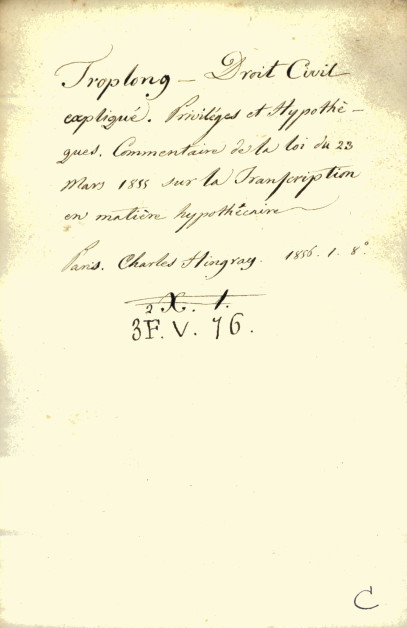 Troplong — Droit Civil
expliqué. Priviléges et Hypothè-
ques. Commentaire de la loi du 23
Mars 1855 sur la Transcription
en matière hypothécaire
Paris. Charles Hingray. 1856. 1. 8°.
2 X. 1.
3F. V. 76.
C